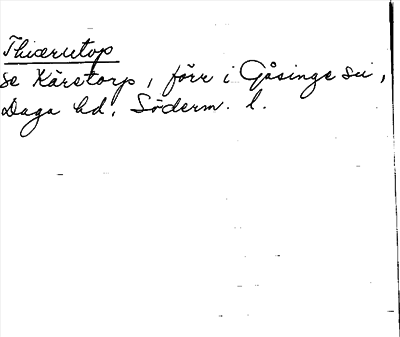 Thiærutop
se Kärstorp, förr i Gåsinge sn,
Daga hd, Söderm. l.